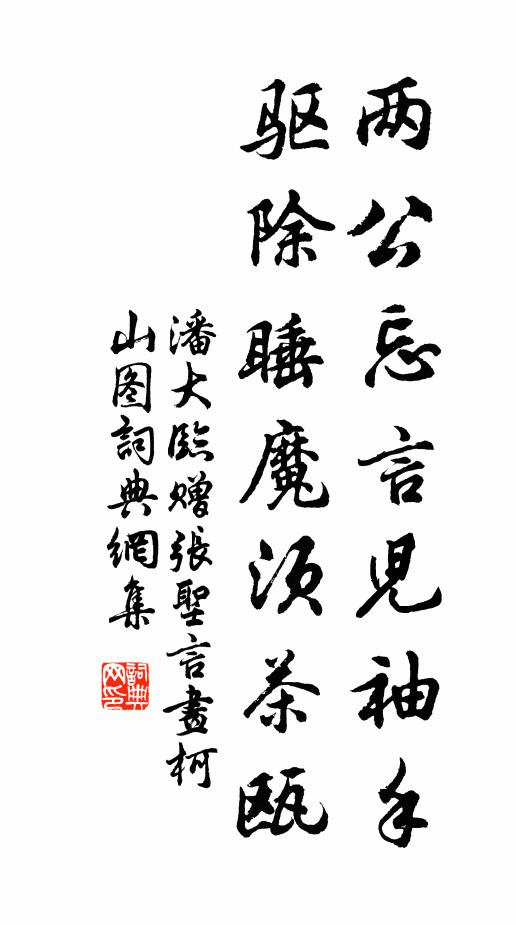 两公忘言児袖手
驱除睡魔须茶瓯
潘大臨赠張聖言畫柯
山图詞典網集
詞典网印